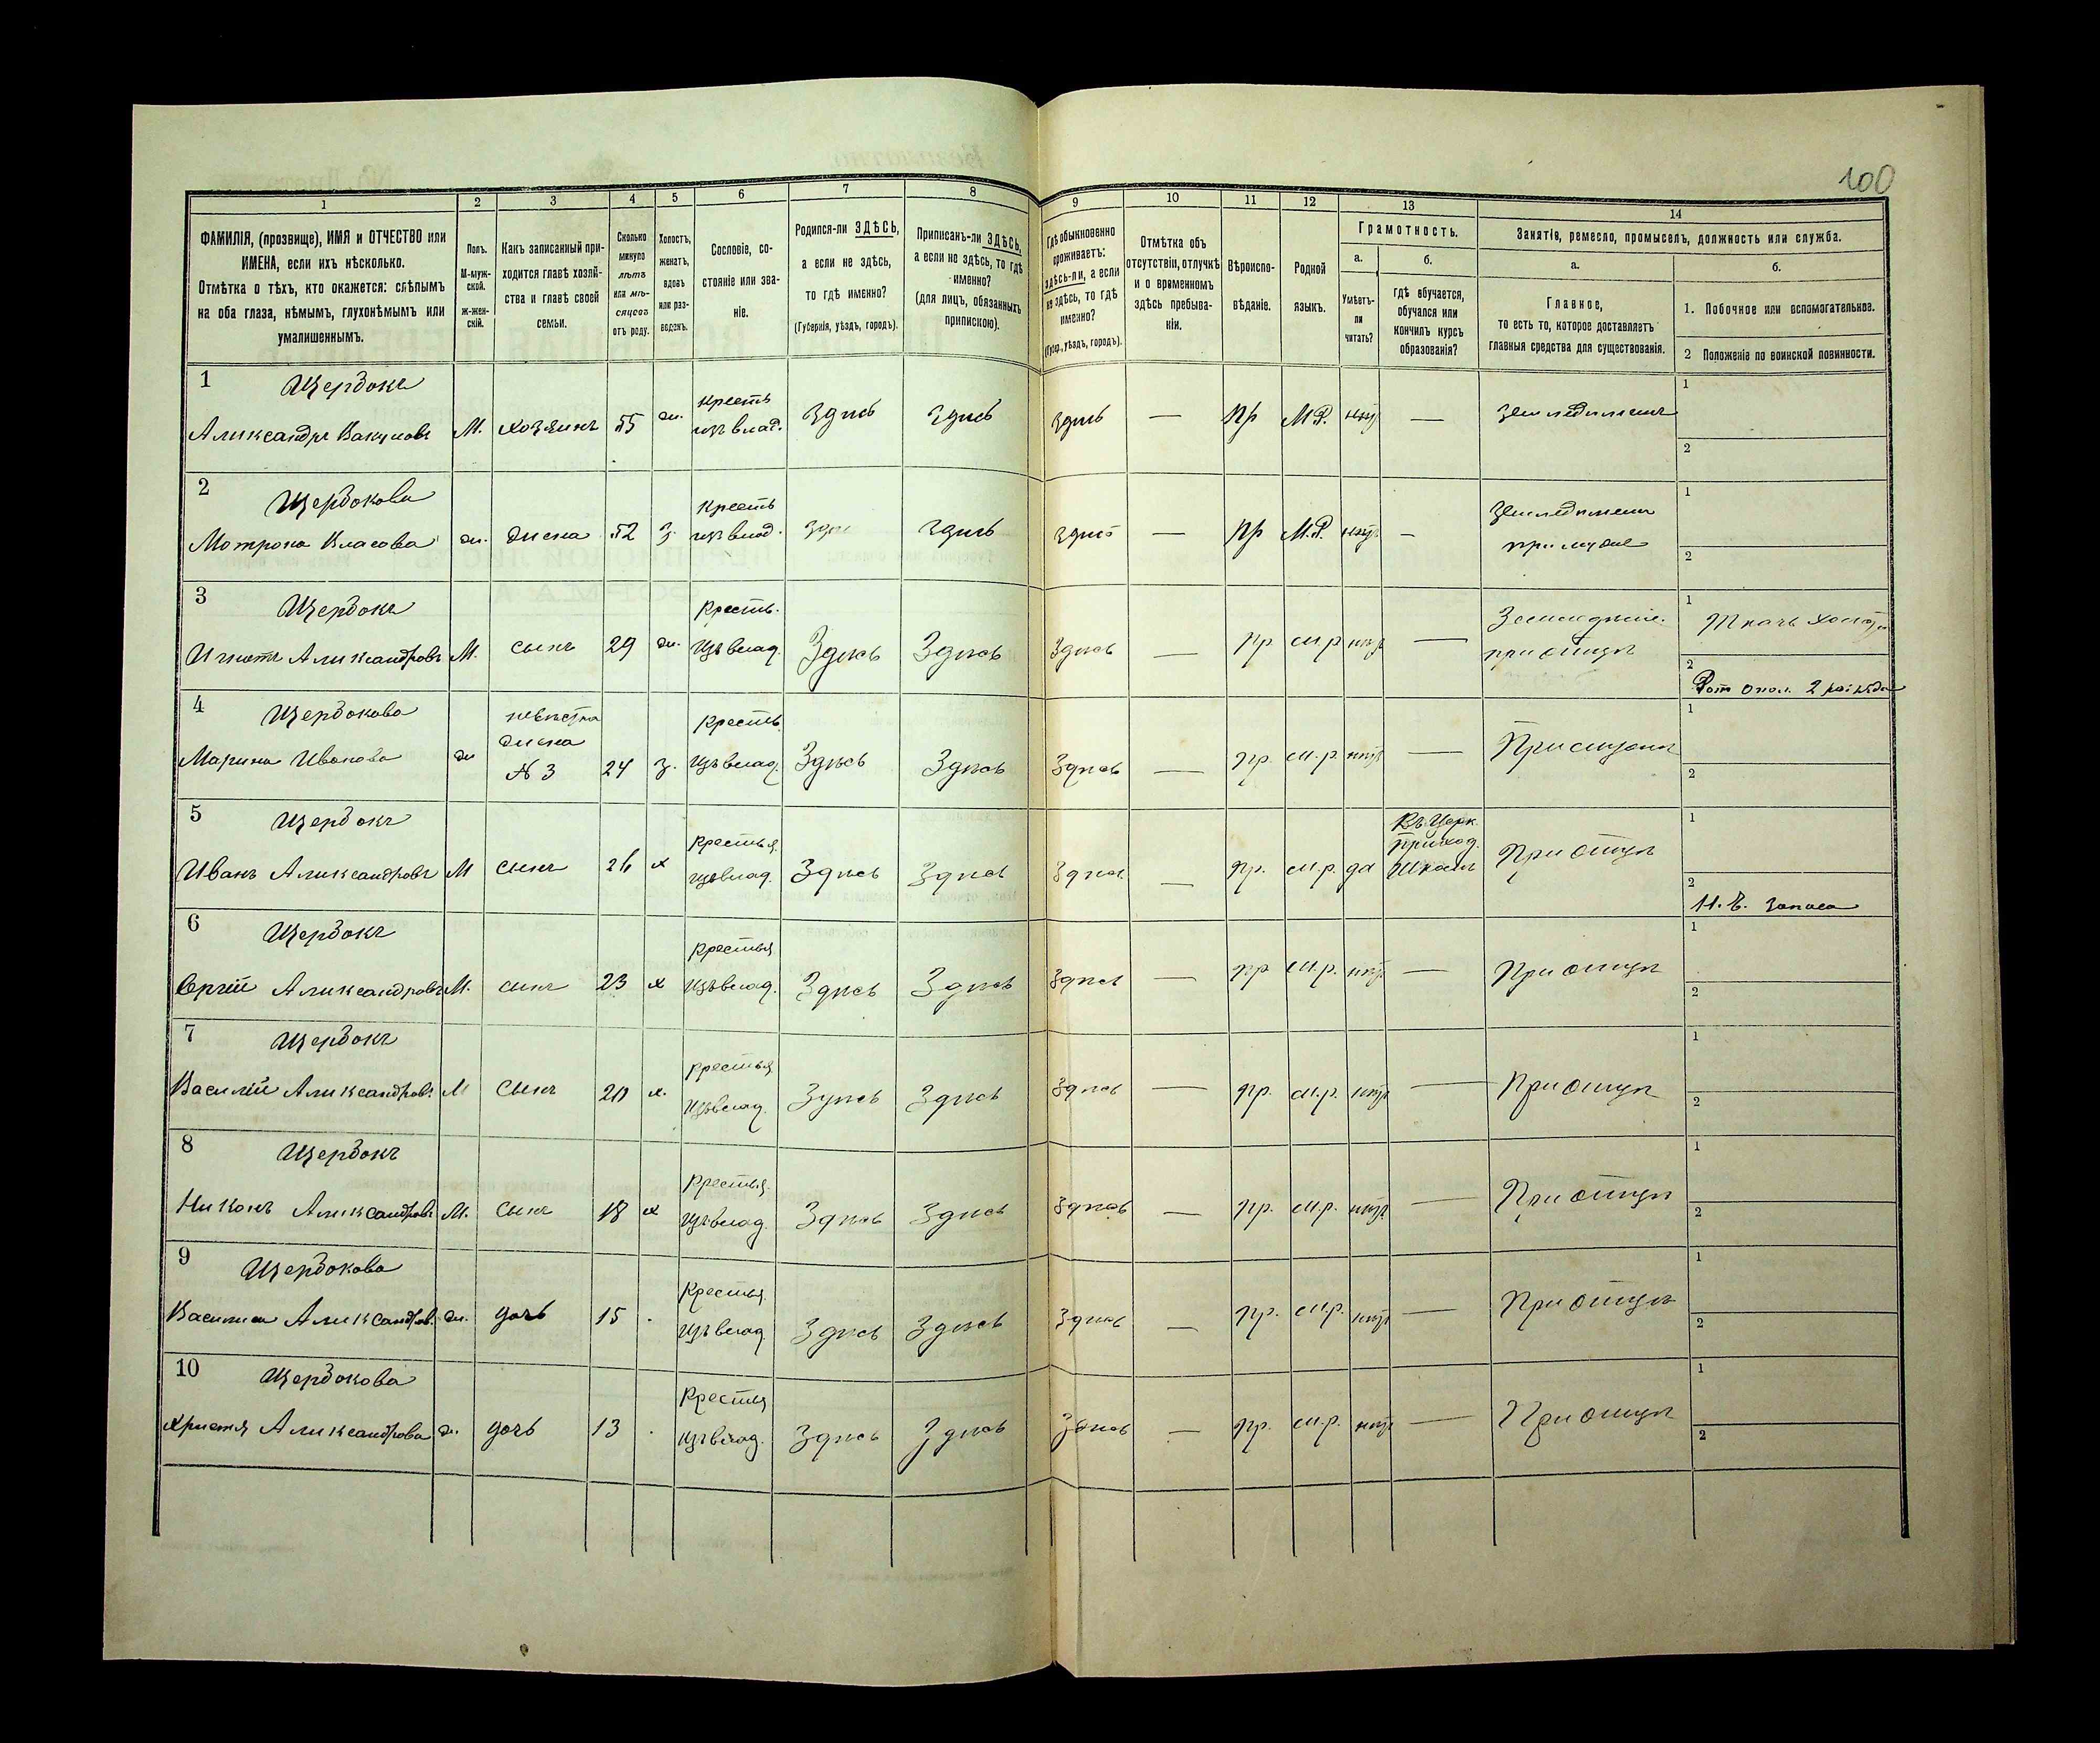 100
1 2 3 4 5 6 7 8 9 10 11 12 13 14
ФАМИЛІЯ, (прозвище), ИМЯ и ОТЧЕСТВО или
ИМЕНА, если ихъ нѣсколько.
Отмѣтка о тѣхъ, кто окажется: слѣпымъ
на оба глаза, нѣмымъ, глухонѣмымъ или
умалишеннымъ.
Полъ.
М-муж-
ской.
ж-жен-
скій.
Какъ записанный при-
ходится главѣ хозяй-
ства и главѣ своей
семьи.
Сколько
минуло
лѣтъ
или мѣ-
сяцевъ
отъ роду.
Холостъ,
женатъ,
вдовъ
или раз-
веденъ.
Сословіе, со-
стояніе или зва-
ніе.
Родился-ли ЗДѢСЬ,
а если не здѣсь,
то гдѣ именно?
(Губернія, уѣздъ, городъ).
Приписанъ-ли ЗДѢСЬ,
а если не здѣсь, то гдѣ
именно?
(для лицъ, обязанныхъ
припискою).
Гдѣ обыкновенно
проживаетъ:
здѣсь-ли, а если
не здѣсь, то гдѣ
именно?
(Губер., уѣздъ, городъ).
Отмѣтка объ
отсутствіи, отлучкѣ
и о временномъ
здѣсь пребыва-
ніи.
Вѣроиспо-
вѣданіе.
Родной
языкъ.
Грамотность.
а.
Умѣетъ-
ли
читать?
б.
гдѣ обучается,
обучался или
кончилъ курсъ
образованія?
Занятіе, ремесло, промыселъ, должность или служба.
а.
Главное,
то есть то, которое доставляетъ
главныя средства для существованія.
б.
1. Побочное или вспомогательное.
2 Положеніе по воинской повинности.
1 Щербокъ Кресть 1
Александръ Вакуловъ М. хозяинъ 55 ж. изъ влад. Здѣсь Здѣсь Здѣсь — Пр М.Р. нѣтъ — земледѣлецъ
2
2 Щербокова Кресть 1
Мотрона Власова ж. жена 52 з. изъ влад. Здѣсь Здѣсь — Пр М.Р. нѣтъ —
при мужѣ 2
3 Щербокъ Кресть. 1 Ткачъ
Игнатъ Александровъ М. сынъ 29 ж. изъ влад. Здѣсь Здѣсь Здѣсь — пр м.р нѣтъ — при отцѣ
2 Рат опол. 2 разряда
4 Щербокова невѣстка Кресть. 1
жена
Марина Иванова ж N 3 24 з. изъ влад. Здѣсь Здѣсь Здѣсь — пр. м.р. нѣтъ —
2
5 Щербокъ Крестья. Въ Церк. 1
приход.
Иванъ Александровъ М сынъ 26 х изъ влад. Здѣсь Здѣсь Здѣсь — пр. м.р. да школѣ При отцѣ
2 Н. Ч. запаса
6 Щербокъ Крестья 1
Сергій Александровъ М. сынъ 23 х изъ влад. Здѣсь Здѣсь Здѣсь — пр м.р. нѣтъ — При отцѣ
2
7 Щербокъ крестья 1
Василій Александров. М сынъ 20 х. изъ влад. Здѣсь Здѣсь Здѣсь — пр. м.р. нѣтъ — При отцѣ
2
8 Щербокъ Крестья. 1
Никонъ Александровъ М. сынъ 18 х изъ влад. Здѣсь Здѣсь Здѣсь — пр. м.р. нѣтъ — При отцѣ
2
9 Щербокова Крестья. 1
Василиса Александров. ж. дочь 15 . изъ влад Здѣсь Здѣсь Здѣсь — пр. м.р. нѣтъ — При отцѣ
2
10 Щербокова Крестья 1
Христя Александрова ж. дочь 13 . изъ влад. Здѣсь Здѣсь Здѣсь — пр. м.р. нѣтъ — При отцѣ
2